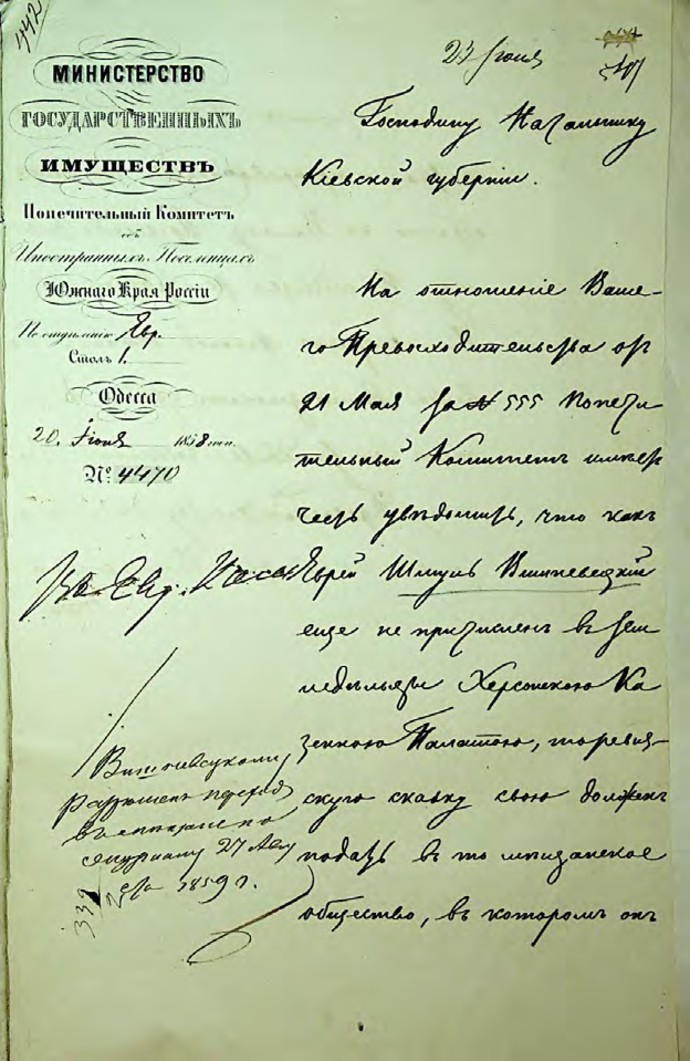 442
23 Іюня
МИНИСТЕРСТВО
ГОСУДАРСТВЕННЫХЪ
ИМУЩЕСТВЪ
Попечительный Комитетъ
объ
Иностранныхъ Поселенцахъ
Южнаго Края Россіи
По отдѣленію Евр.
Столъ 1.
Одесса
20. Іюня 1858 года.
№ 4470
Господину Начальнику
Кіевской губерніи.
На отношеніе Ваше-
го Превосходительства отъ
21 Мая за № 555 Попечи
тельный Комитетъ имѣетъ
честь увѣдомить, что какъ
Еврей Шмуль Вишневецкій
еще не причисленъ въ зем
ледѣльцы Херсонскою Ка
зенною Палатою, то ревиз-
скую сказку свою долженъ
подать въ то мѣщанское
общество, въ которомъ онъ
Вишневецкому
разрѣшенъ переходъ
27
1859 г.
339